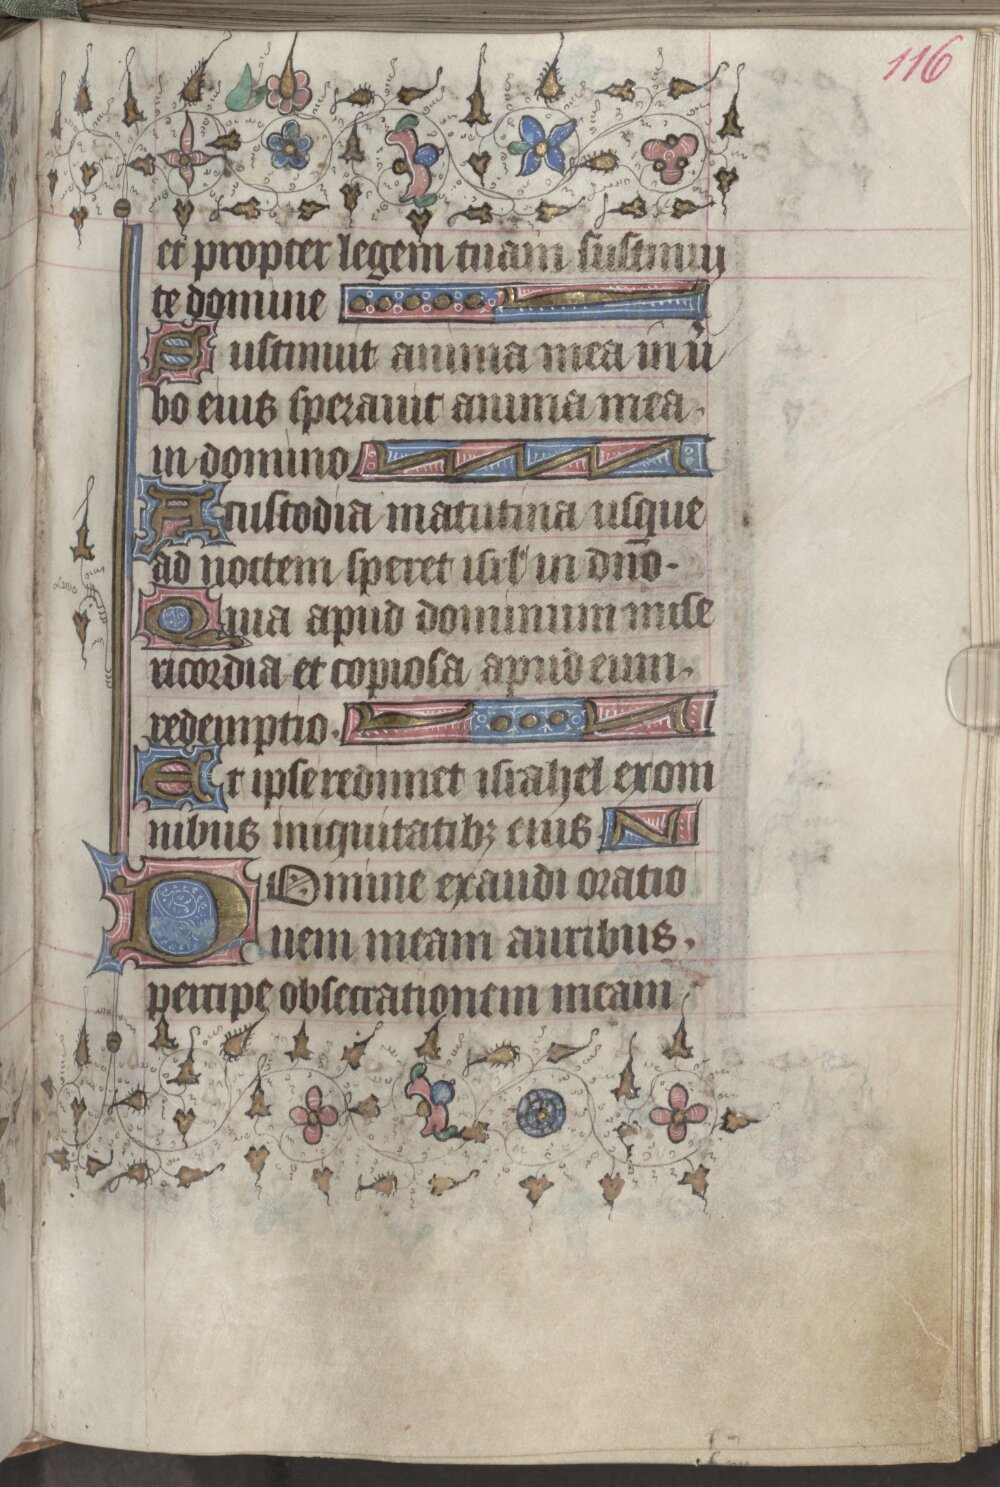 116
et propter legem tuam sustinui
te domine
Sustinuit anima mea in ũ
bo eius speravit anima mea.
in domino
A custodia matutina usque
ad noctem speret isrl in dño.
Quia apud dominum mise
ricordia et copiosa apud eum.
redemptio.
Et ipse redimet israhel ex om
nibus iniquitatibꝫ eius
Domine exaudi oratio
nem meam auribus.
percipe obsecrationem meam